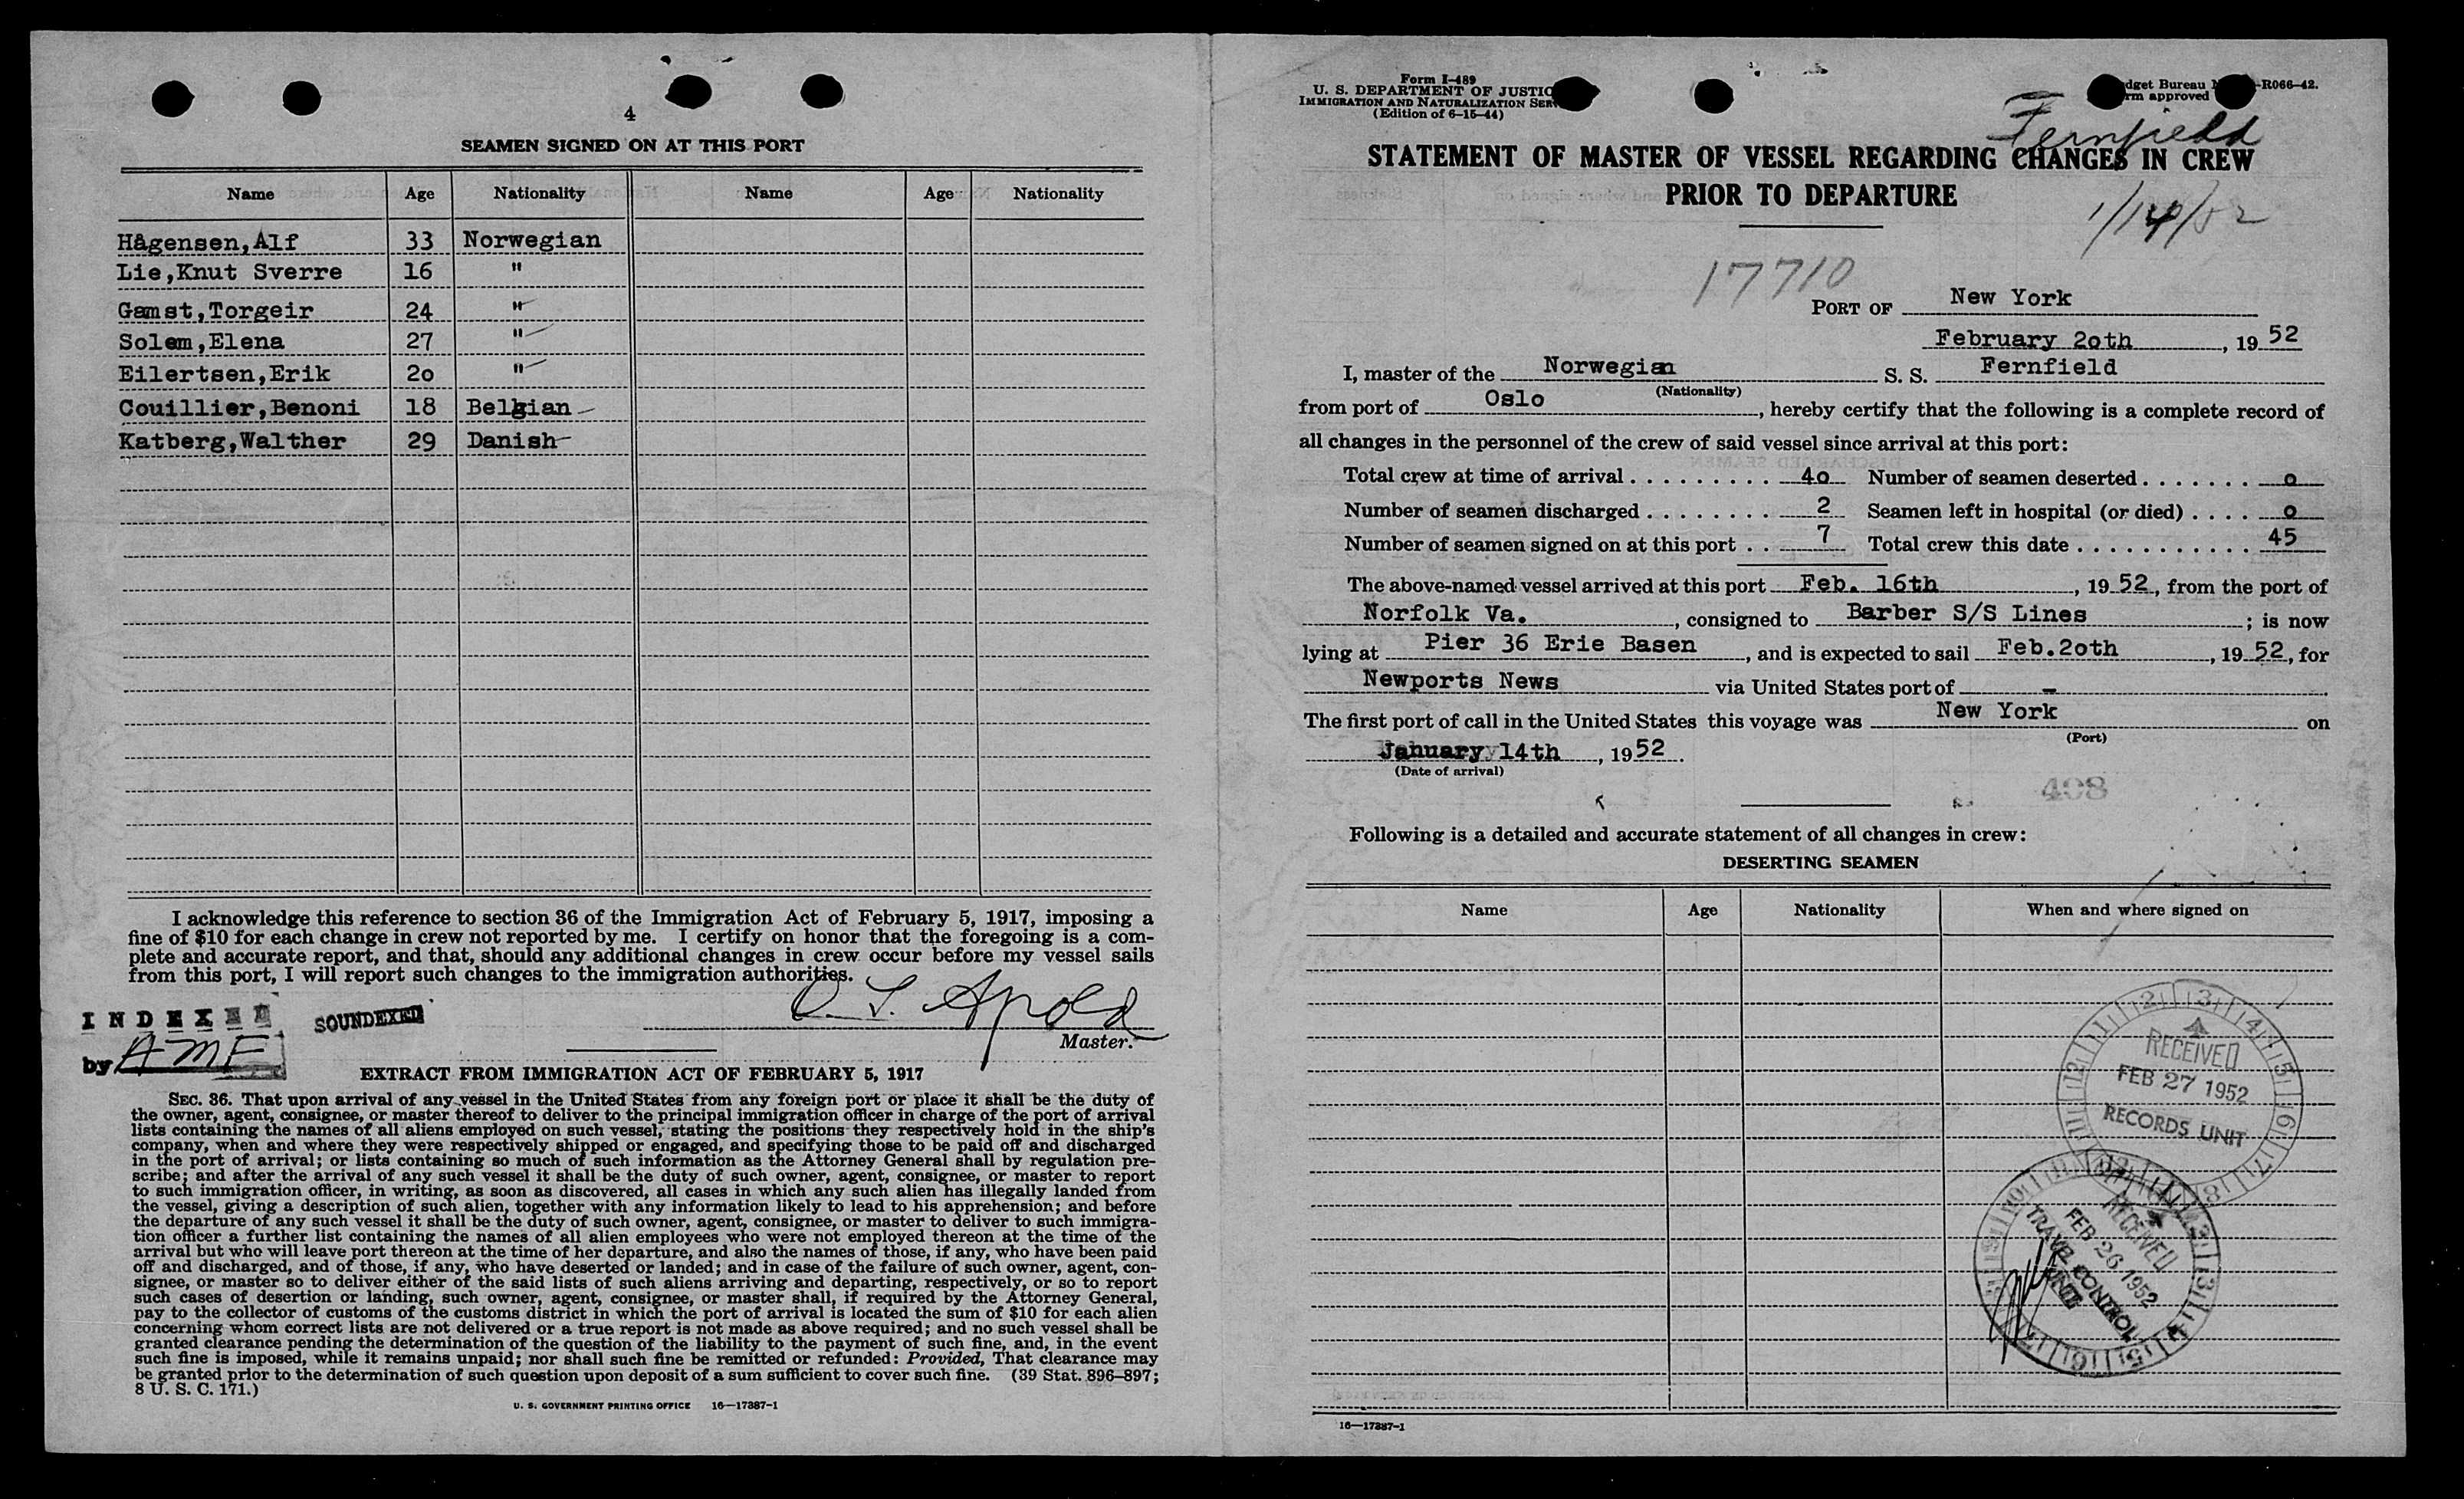 4
SEAMEN SIGNED ON AT THIS PORT
Name Age Nationality Name Age Nationality
Hågensen,Alf 33 Norwegian
Lie,Knut Sverre 16 "
Gamst,Torgeir 24 "
Solem,Elena 27 "
Eilertsen,Erik 2o "
Couillier,Benoni 18 Belgian
Katberg,Walther 29 Danish
I acknowledge this reference to section 36 of the Immigration Act of February 5, 1917, imposing a
fine of $10 for each change in crew not reported by me. I certify on honor that the foregoing is a com-
plete and accurate report, and that, should any additional changes in crew occur before my vessel sails
from this port, I will report such changes to the immigration authorities.
O. L. Apold
Master.
INDEXED
by AMF
SOUNDEXED
EXTRACT FROM IMMIGRATION ACT OF FEBRUARY 5, 1917
SEC. 36. That upon arrival of any vessel in the United States from any foreign port or place it shall be the duty of
the owner, agent, consignee, or master thereof to deliver to the principal immigration officer in charge of the port of arrival
lists containing the names of all aliens employed on such vessel, stating the positions they respectively hold in the ship's
company, when and where they were respectively shipped or engaged, and specifying those to be paid off and discharged
in the port of arrival; or lists containing so much of such information as the Attorney General shall by regulation pre-
scribe; and after the arrival of any such vessel it shall be the duty of such owner, agent, consignee, or master to report
to such immigration officer, in writing, as soon as discovered, all cases in which any such alien has illegally landed from
the vessel, giving a description of such alien, together with any information likely to lead to his apprehension; and before
the departure of any such vessel it shall be the duty of such owner, agent, consignee, or master to deliver to such immigra-
tion officer a further list containing the names of all alien employees who were not employed thereon at the time of the
arrival but who will leave port thereon at the time of her departure, and also the names of those, if any, who have been paid
off and discharged, and of those, if any, who have deserted or landed; and in case of the failure of such owner, agent, con-
signee, or master so to deliver either of the said lists of such aliens arriving and departing, respectively, or so to report
such cases of desertion or landing, such owner, agent, consignee, or master shall, if required by the Attorney General,
pay to the collector of customs of the customs district in which the port of arrival is located the sum of $10 for each alien
concerning whom correct lists are not delivered or a true report is not made as above required; and no such vessel shall be
granted clearance pending the determination of the question of the liability to the payment of such fine, and, in the event
such fine is imposed, while it remains unpaid; nor shall such fine be remitted or refunded: Provided, That clearance may
be granted prior to the determination of such question upon deposit of a sum sufficient to cover such fine. (39 Stat. 896–897;
8 U. S. C. 171.)
U. S. GOVERNMENT PRINTING OFFICE 16—17387-1
Form I-489
U. S. DEPARTMENT OF JUSTIC
IMMIGRATION AND NATURALIZATION SER
(Edition of 6-15-44)
dget Bureau N -R066-42.
rm approved
Fernfield
STATEMENT OF MASTER OF VESSEL REGARDING CHANGES IN CREW
PRIOR TO DEPARTURE
1/14/52
17710
PORT OF New York
February 2oth, 1952
I, master of the Norwegian S. S. Fernfield
(Nationality)
from port of Oslo, hereby certify that the following is a complete record of
all changes in the personnel of the crew of said vessel since arrival at this port:
Total crew at time of arrival 4o Number of seamen deserted o
Number of seamen discharged 2 Seamen left in hospital (or died) o
Number of seamen signed on at this port 7 Total crew this date 45
The above-named vessel arrived at this port Feb. 16th, 1952, from the port of
Norfolk Va., consigned to Barber S/S Lines; is now
lying at Pier 36 Erie Basen, and is expected to sail Feb.2oth, 1952, for
Newports News via United States port of -
The first port of call in the United States this voyage was New York on
(Port)
January 14th, 1952.
(Date of arrival)
408
Following is a detailed and accurate statement of all changes in crew:
DESERTING SEAMEN
Name Age Nationality When and where signed on
RECEIVED
FEB 27 1952
RECORDS UNIT
RECEIVED
FEB 26 1952
TRAVEL CONTROL
UNIT
16—17387-1